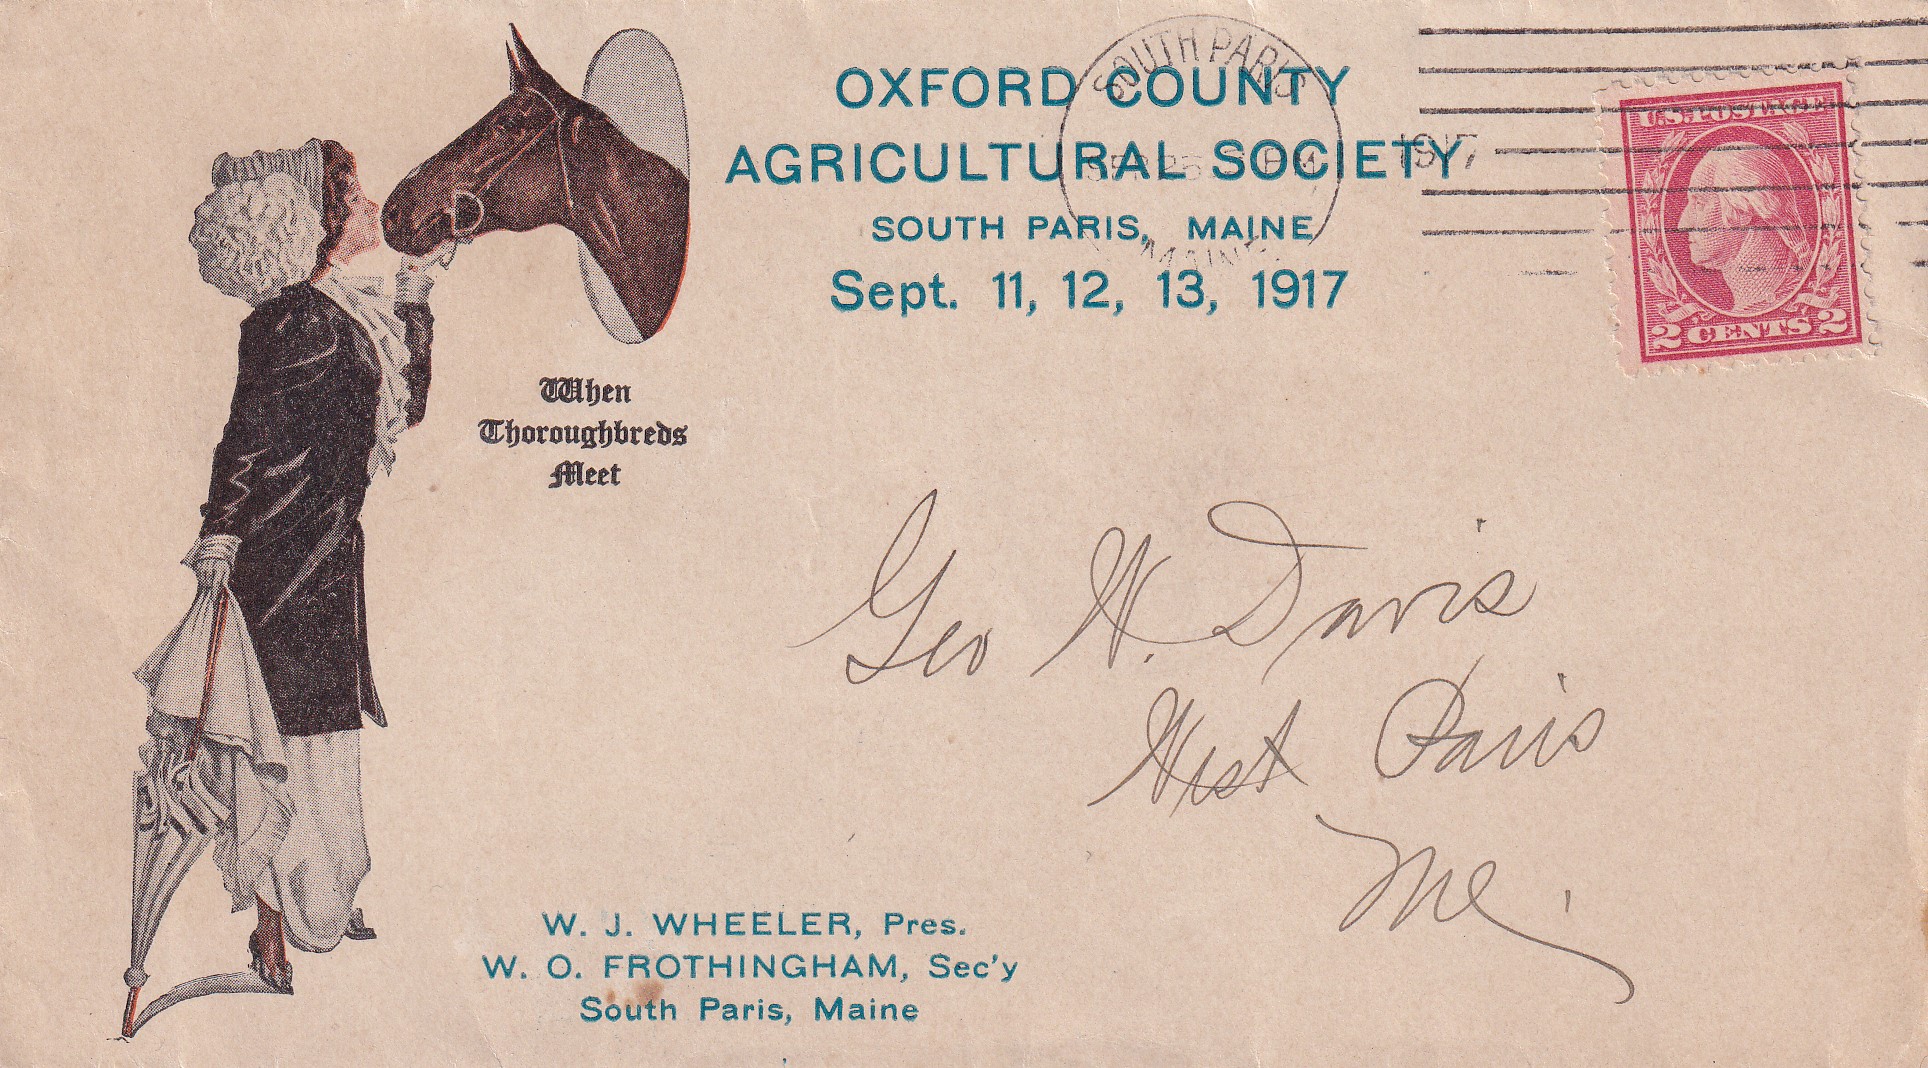 OXFORD COUNTY
AGRICULTURAL SOCIETY
SOUTH PARIS, MAINE
Sept. 11, 12, 13, 1917
SOUTH PARIS
1917
MAINE
U.S. POSTAGE
2 CENTS 2
When
Thoroughbreds
Meet
Geo W. Davis
West Paris
Me.
W. J. WHEELER, Pres.
W. O. FROTHINGHAM, Sec'y
South Paris, Maine